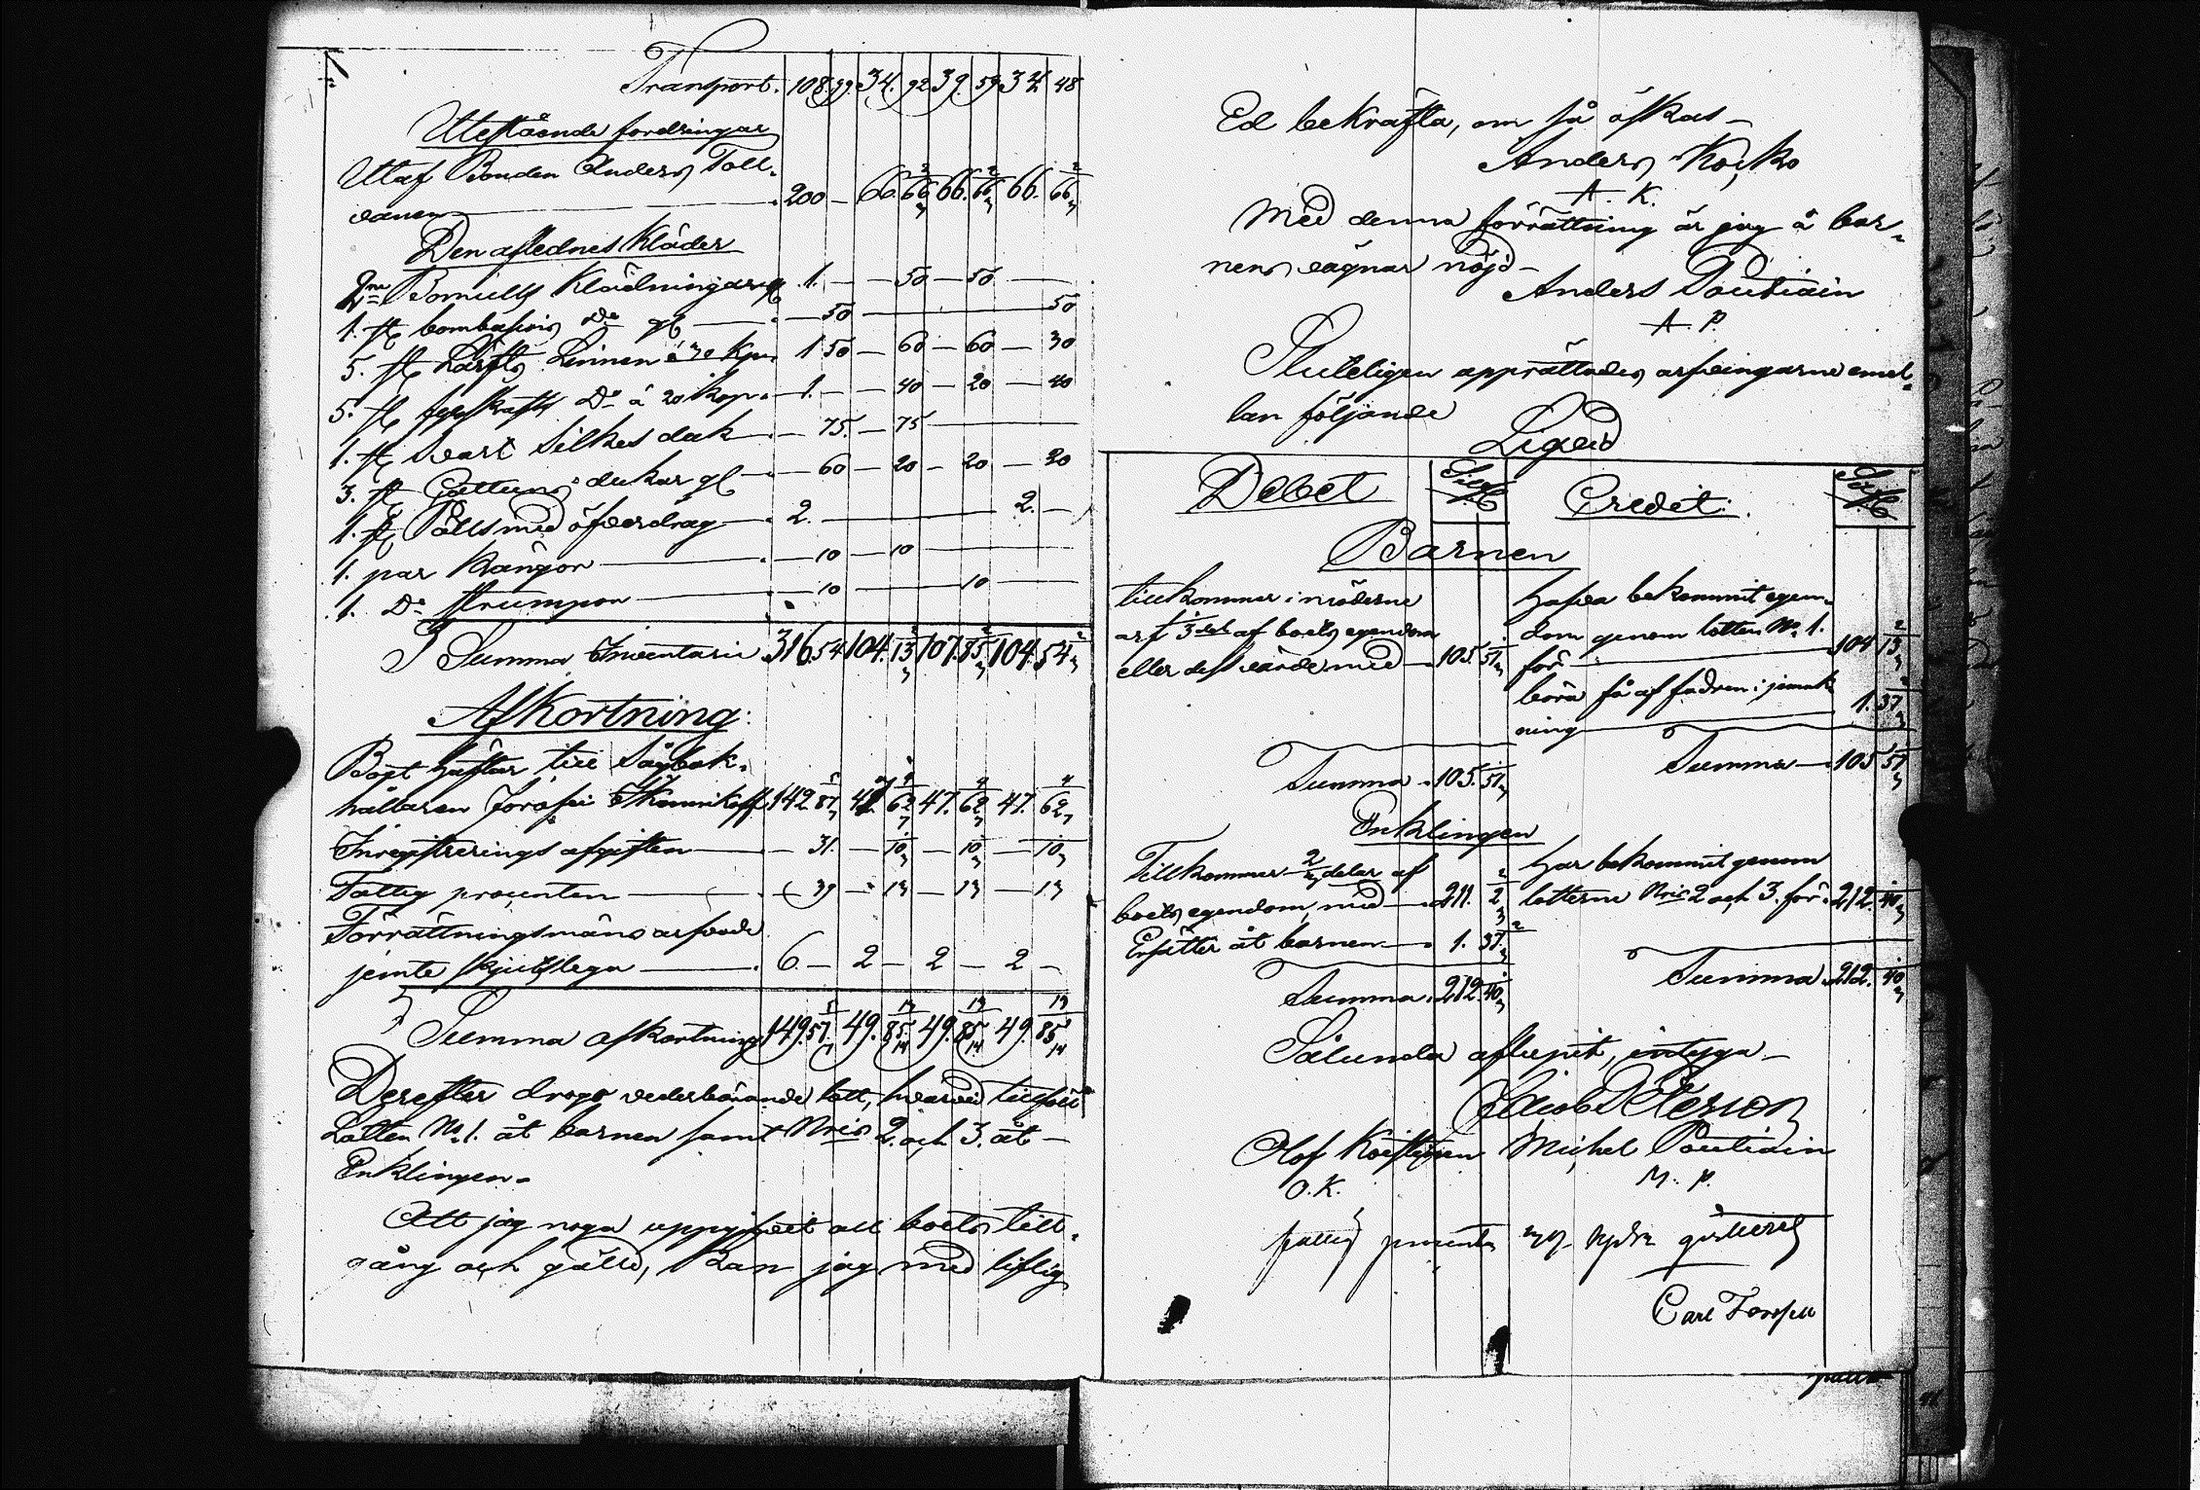 Transport. 108. 99. 34. 92 39. 59 34 48
Utestående fordringar
Utaf Bonden Anders Toll-
vanen 200 — 66. 66 2/3 66. 66 2/3 66. 66 2/3
Den aflednes Kläder
2ne Bomulls Klädningar 1. — — 50 — 50 —
1. st. bombasins Do gl — 50 — 50
5. st. Lärfts Linnen á 30 Kp. 1 50 — 60 — 60 — 30
5. st. Do á 20 Kop. 1. — — 40 — 20 — 40
1. st. svart Silkes duk — 75. — 75 —
3. st. Cattuns dukar gl — 60 — 20 — 20 — 20
1. st. Pälls med öfverdrag 2. — 2. —
1. par Kängor — 10 — 10 —
1. Do strumpor — 10 — 10 —
Summa Inventarii 316. 54 104. 13 2/3 107. 85 2/3 104. 54 2/3
Afkortning:
Boet häftar till Sågbok-
hållaren 142. 87 1/7 47. 62 2/7 47. 62 2/7 47. 62 2/7
Inregistrerings afgiften — 31. — 10 1/3 — 10 1/3 — 10 1/3
Fattig procenten — 39 — 13 — 13 — 13
Förrättningsmäns arfvode
jemte skjutslega 6. — 2 — 2 — 2 —
Summa afkortning 149. 57 1/7 49. 85 49. 85 49. 85
Derefter drogs vederbörande lott, hvarvid tillföll
Lotten No 1. åt barnen samt Nris 2. och 3. åt
Enklingen.
Att jag noga uppgifvit all boets till-
gång och gäld, Kan jag med liflig
Ed bekräfta, om så äskas —
Anders Kocko
A. K.
Med denna förrättning är jag å bar-
nens vägnar nöjd —
Anders Poutiain
A. P.
Sluteligen upprättades arfvingarne emel-
lan följande
Liqvid
Debet Silf. Credit. Silf.
Barnen
tillkommer i möderne
arf 3del af boets egendom
eller dess värde med 105. 51 1/3
Hafva bekommit egen-
dom genom lotten No 1.
för 104 13 2/3
böra få af fadren i jemk-
ning 1. 37 2/3
Summa 105. 51 1/3 Summa 105 51 1/3
Enklingen
Tillkommer 2/3 delar af
boets egendom, med 211. 2 2/3
Ersätter åt barnen 1. 37 2/3
Har bekommit genom
lotterne Nris 2 och 3. för 212. 40 1/3
Summa 212. 40 1/3 Summa 212. 40 1/3
Sålunda aflupit, intyga —
Jacob Peterson
Olof Michel Poutiain
O. K. M. P.
fattig procenten
Carl Forssell